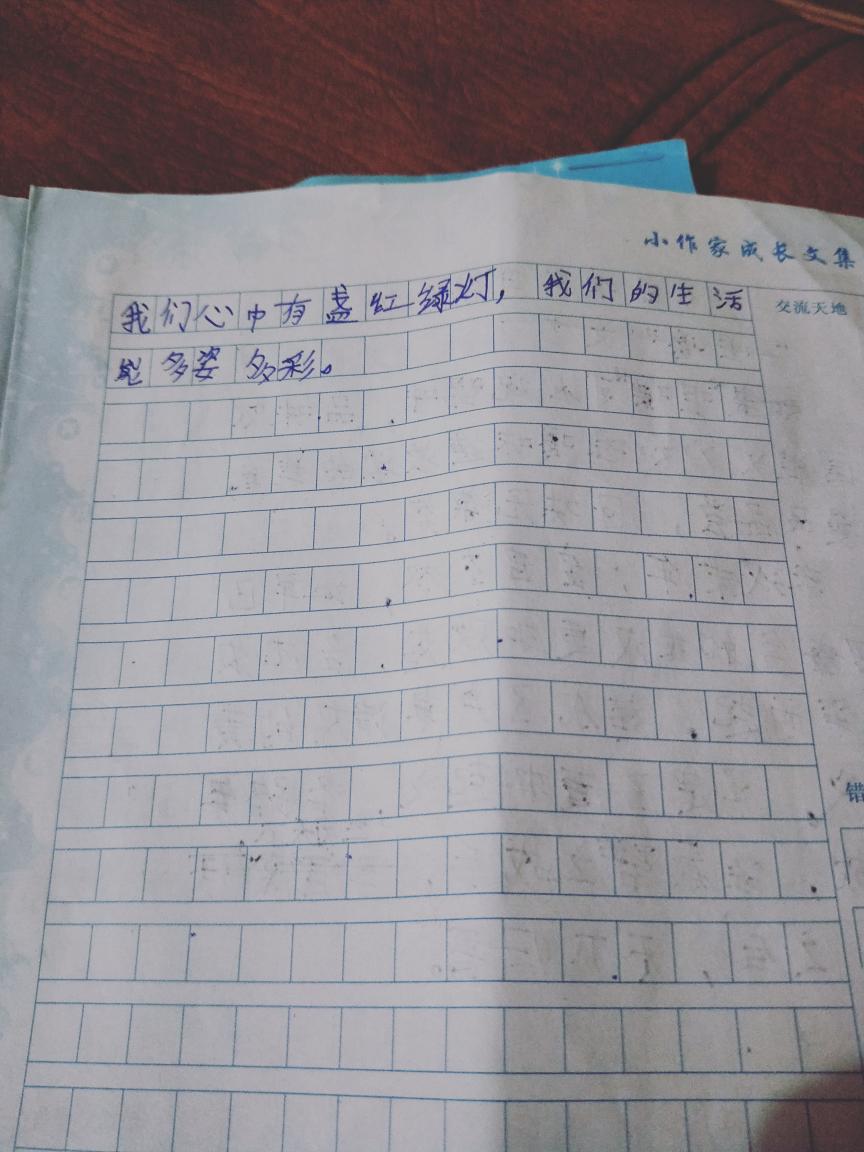 小作家成长文集
交流天地
我们心中有盏红绿灯，我们的生活
多姿多彩。
错